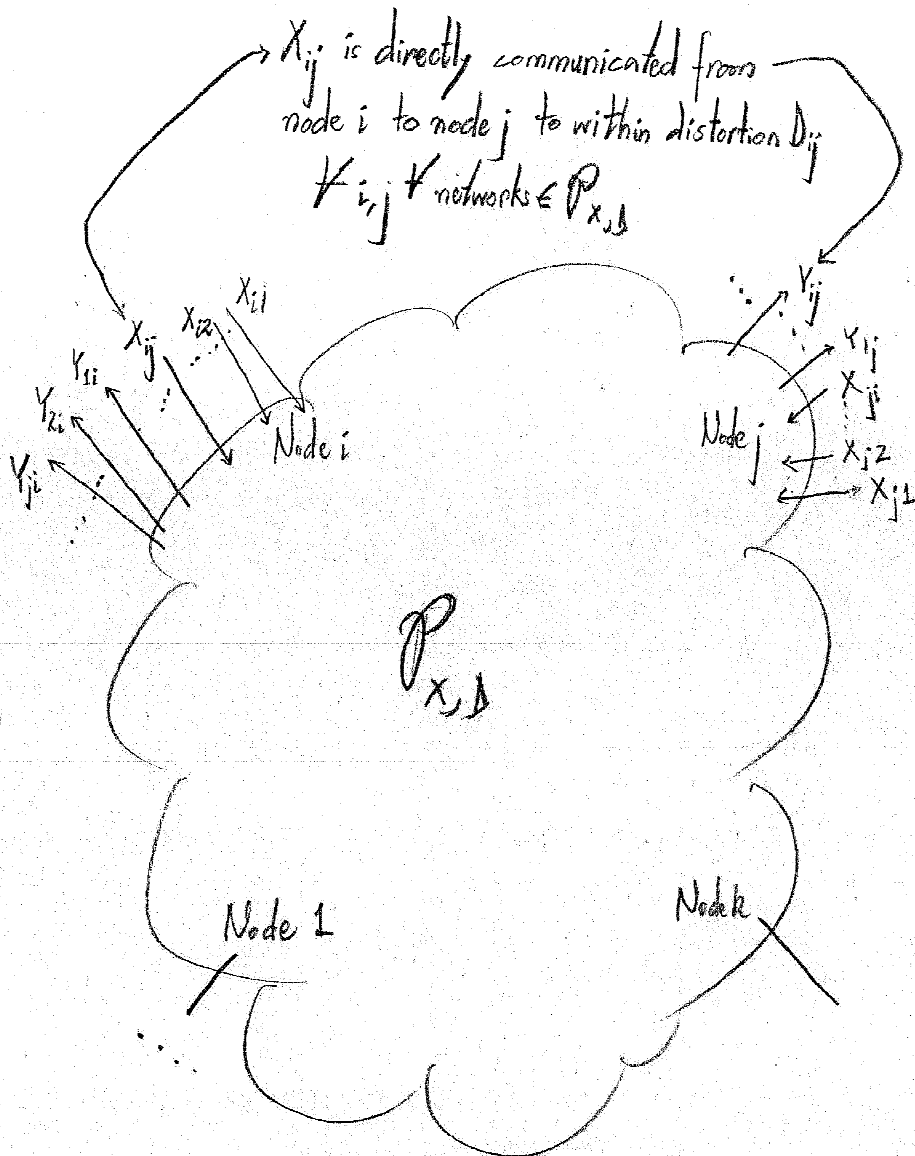 X_ij is directly communicated from
node i to node j to within distortion D_ij
∀ i,j ∀ networks ∈ P_X,D
X_i1
X_i2
X_ij
Y_1i
Y_2i
Y_ji
Node i
Y_ij
Y_1j
X_ji
X_j2
X_j1
Node j
P_X,D
Node 1
Node k